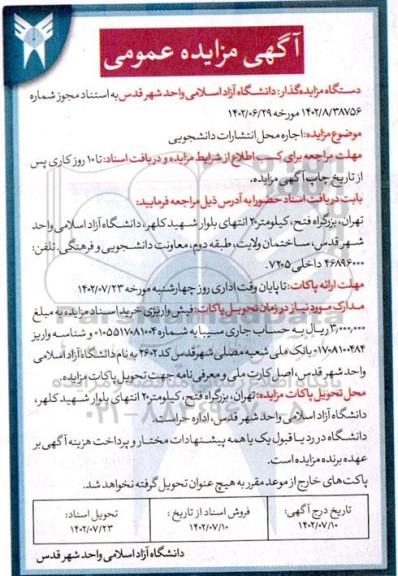 آگهی مزایده عمومی
دستگاه مزایده‌گذار: دانشگاه آزاد اسلامی واحد شهر قدس به استناد مجوز شماره
۱۴۰۲/۸/۳۸۷۵۶ مورخه ۱۴۰۲/۰۶/۲۹
موضوع مزایده: اجاره محل انتشارات دانشجویی
مهلت مراجعه برای کسب اطلاع از شرایط مزایده و دریافت اسناد: تا ۱۰ روز کاری پس
از تاریخ چاپ آگهی مزایده.
بابت دریافت اسناد حضورا به آدرس ذیل مراجعه فرمایید:
تهران، بزرگراه فتح، کیلومتر ۲۰ انتهای بلوار شهید کلهر، دانشگاه آزاد اسلامی واحد
شهر قدس، ساختمان ولایت، طبقه دوم، معاونت دانشجویی و فرهنگی. تلفن:
۴۶۸۹۶۰۰۰ داخلی ۷۲۰۵.
مهلت ارائه پاکات: تا پایان وقت اداری روز چهارشنبه مورخه ۱۴۰۲/۰۷/۲۳
مدارک مورد نیاز در زمان تحویل پاکات: فیش واریزی خرید اسناد مزایده به مبلغ
۳,۰۰۰,۰۰۰ ریال به حساب جاری سیبا به شماره ۰۱۰۵۵۱۷۰۸۱۰۰۴ و شناسه واریز
۰۱۷۰۸۱۰۰۴۸۴ بانک ملی شعبه مصلی شهر قدس کد ۲۶۰۲ به نام دانشگاه آزاد اسلامی
واحد شهر قدس، اصل کارت ملی و معرفی نامه جهت تحویل پاکات مزایده.
محل تحویل پاکات مزایده: تهران، بزرگراه فتح، کیلومتر ۲۰ انتهای بلوار شهید کلهر،
دانشگاه آزاد اسلامی واحد شهر قدس، اداره حراست.
دانشگاه در رد یا قبول یک یا همه پیشنهادات مختار و پرداخت هزینه آگهی بر
عهده برنده مزایده است.
پاکت‌های خارج از موعد مقرر به هیچ عنوان تحویل گرفته نخواهد شد.
تاریخ درج آگهی: فروش اسناد از تاریخ: تحویل اسناد:
۱۴۰۲/۰۷/۱۰ ۱۴۰۲/۰۷/۱۰ ۱۴۰۲/۰۷/۲۳
دانشگاه آزاد اسلامی واحد شهر قدس